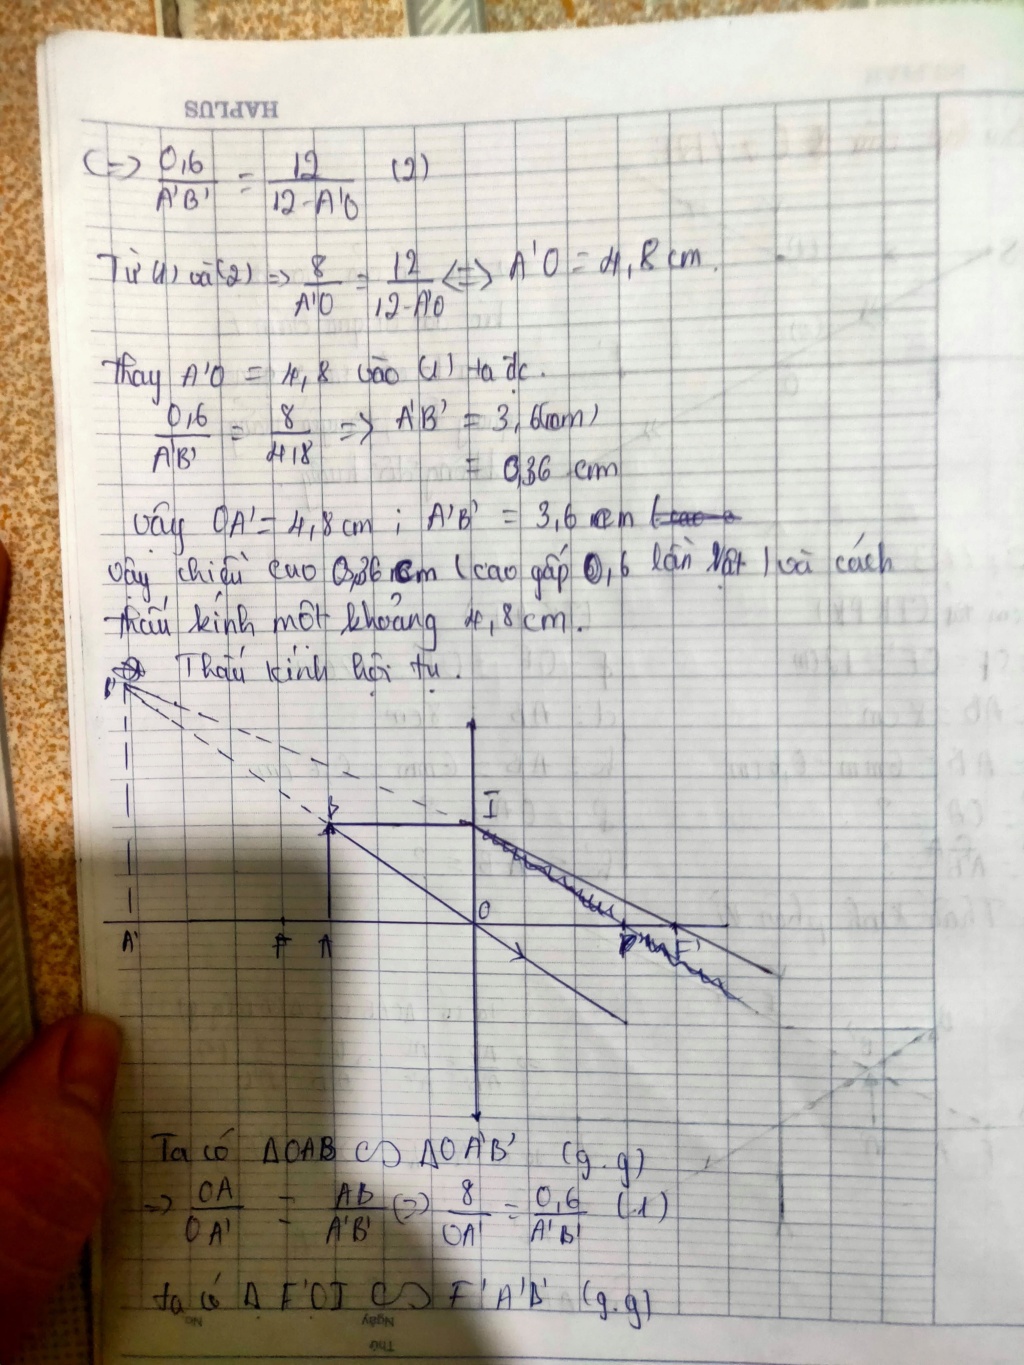 HAPLUS
(=> 0,6/A'B' = 12/(12-A'O) (2)
Từ (1) và (2) => 8/A'O = 12/(12-A'O) <=> A'O = 4,8 cm.
Thay A'O = 4,8 vào (1) ta đc.
0,6/A'B' = 8/4,8 => A'B' = 3,6(mm)
= 0,36 cm
Vậy OA' = 4,8 cm ; A'B' = 3,6 cm
Vậy chiều cao 0,36 cm (cao gấp 0,6 lần vật) và cách
thấu kính một khoảng 4,8 cm.
Thấu kính hội tụ.
B'
B I
O
A' F A F'
Ta có ΔOAB ∽ ΔOA'B' (g.g)
=> OA/OA' = AB/A'B' (=) 8/OA' = 0,6/A'B' (1)
ta có Δ F'OI ∽ F'A'B' (g.g)
No
Ngày
Thứ